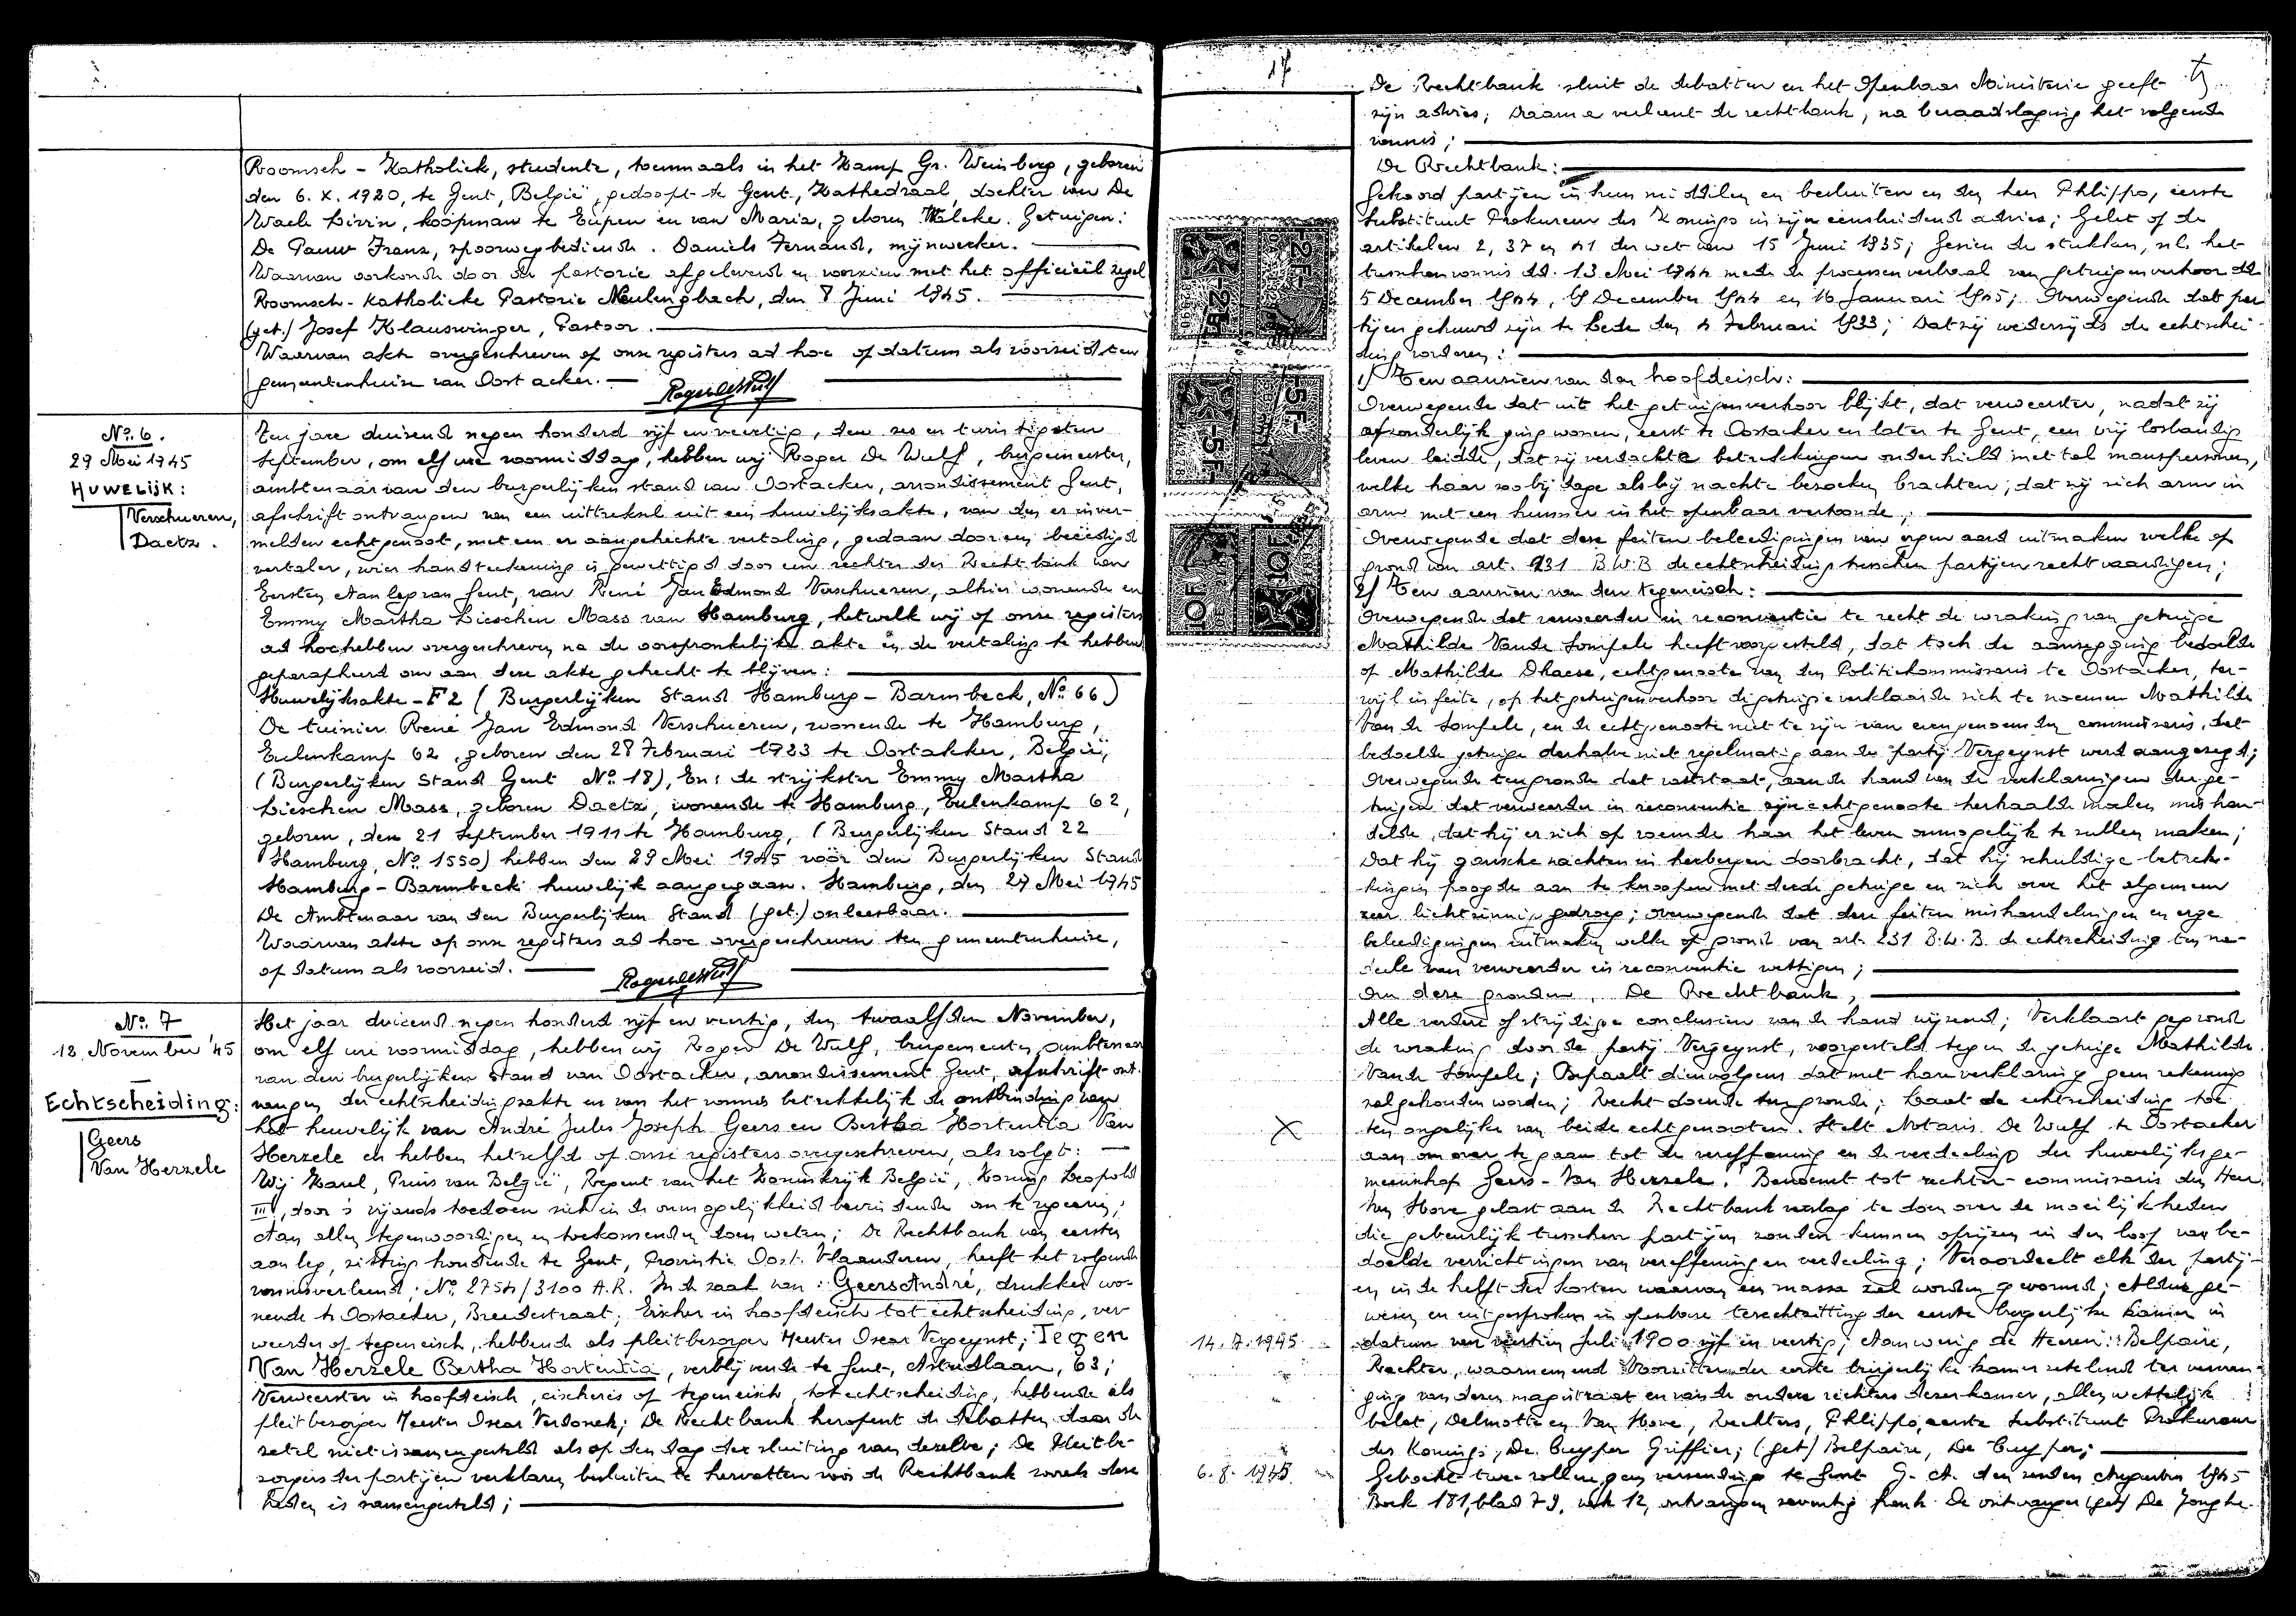 Roomsch-Katholiek, studente, toenmaals in het Kamp Gr. Weinberg, geboren
den 6. X. 1920, te Gent, België, gedoopt te Gent, Kathedraal, dochter van De
Waele Livin, koopman te Eupen en van Maria, geboren Getuigen:
De Pauw Frans, spoorwegbediende. Daniels Fernand, mijnwerker.
Waarvan oorkonde door de pastorie afgeleverd en voorzien met het officieël zegel
Roomsch-Katholieke Pastorie Neulengbach, den 8 Juni 1945.
(get.) Josef Klauswinger, Pastoor.
Waarvan akte overgeschreven op onze registers ad hoc op datum als voorseid ten
gemeentenhuize van Oostacker.
Roger De Wulf
No. 6.
29 Mei 1945
HUWELIJK:
Verschueren,
Daetz.
Ten jare duizend negen honderd vijf en veertig, den zes en twintigsten
September, om elf ure voormiddag, hebben wij Roger De Wulf, burgemeester,
ambtenaar van den burgerlijken stand van Oostacker, arrondissement Gent,
afschrift ontvangen van een uittreksel uit een huwelijksakte, van den er inver-
melden echtgenoot, met een er aangehechte vertaling, gedaan door een beëedigd
vertaler, wier handteekening is gewettigd door een rechter der Rechtbank van
Eersten Aanleg van Gent, van René Jan Edmond Verschueren, alhier wonende en
Emmy Martha Lieschen Mass van Hamburg, hetwelk wij op onze registers
ad hoc hebben overgeschreven na de oorspronkelijke akte en de vertaling te hebben
geparapheerd om aan deze akte gehecht te blijven:
Huwelijksakte - F2 (Burgerlijken Stand Hamburg - Barmbeck, No. 66.)
De tuinier René Jan Edmond Verschueren, wonende te Hamburg,
Eulenkamp 62, geboren den 28 Februari 1923 te Oostakker, België,
(Burgerlijken Stand Gent No. 18), En: de strijkster Emmy Martha
Lieschen Mass, geboren Daetz, wonende te Hamburg, Eulenkamp 62,
geboren, den 21 September 1911 te Hamburg, (Burgerlijken Stand 22
Hamburg, No. 1550) hebben den 29 Mei 1945 vóór den Burgerlijken Stand
Hamburg - Barmbeck huwelijk aangegaan. Hamburg, den 29 Mei 1945
De Ambtenaar van den Burgerlijken Stand (get.) onleesbaar.
Waarvan akte op onze registers ad hoc overgeschreven ten gemeentenhuize,
op datum als voorseid.
Roger De Wulf
No. 7
12. November '45
Echtscheiding:
Geers
Van Herzele
Het jaar duizend negen honderd vijf en veertig, den twaalfden November,
om elf ure voormiddag, hebben wij Roger De Wulf, burgemeester, ambtenaar
van den burgerlijken stand van Oostacker, arrondissement Gent, afschrift ont-
vangen der echtscheidingsakte en van het vonnis betrekkelijk de ontbinding van
het huwelijk van André Jules Joseph Geers en Bertha Hortentia Van
Herzele en hebben hetzelfd op onze registers overgeschreven, als volgt:
Wij Karel, Prins van België, Regent van het Koninkrijk België, Koning Leopold
III, door 's vijands toedoen zich in de onmogelijkheid bevindende om te regeeren;
Aan allen tegenwoordigen en toekomenden doen weten; De Rechtbank van eersten
aanleg, zitting houdende te Gent, Provintie Oost. Vlaanderen, heeft het volgende
vonnis verleend; No. 2754/3100 A.R. In de zaak van: Geers André, drukker wo-
nende te Oostacker, Breedestraat; Eischer in hoofdeisch tot echtscheiding, ver-
weerder op tegeneisch, hebbende als pleitbezorger Meester Oscar Vergeynst; Tegen
Van Herzele Bertha Hortentia, verblijvende te Gent, Astridlaan, 63;
Verweerster in hoofdeisch, eischeres op tegeneisch, tot echtscheiding, hebbende als
pleitbezorger Meester Oscar Verdonck; De Rechtbank heropent de debatten daar de
zetel niet is samengesteld als op den dag der sluiting van dezelve; De Pleitbe-
zorgers der partijen verklaren besluiten te hervatten vóór de Rechtbank zooals deze
heden is samengesteld;
17
De Rechtbank sluit de debatten en het Openbaar Ministerie geeft
zijn advies; Daarna verleent de rechtbank, na beraadslaging het volgende
vonnis;
De Rechtbank:
Gehoord partijen in hun middelen en besluiten en den heer Philippo, eerste
Substituut Prokureur des Konings in zijn eensluidend advies; Gelet op de
artikelen 2, 37 en 41 der wet van 15 Juni 1935; Gezien de stukken, nl. het
tusschenvonnis dd. 13 Mei 1944 mede de processen verbaal van getuigenverhoor dd
5 December 1944, 19 December 1944 en 16 Januari 1945; Overwegende dat par-
tijen gehuwd zijn te Lede den 4 Februari 1933; Dat zij wederzijds de echtschei-
ding vorderen:
1) Ten aanzien van den hoofdeisch:
Overwegende dat uit het getuigenverhoor blijkt, dat verweerster, nadat zij
afzonderlijk ging wonen, eerst te Oostacker en later te Gent, een vrij losbandig
leven leidde, dat zij verdachte betrekkingen onderhield met tal manspersonen,
welke haar zoo bij dage als bij nachte bezoeken brachten; dat zij zich arm in
arm met een hunner in het openbaar vertoonde;
Overwegende dat deze feiten beleedigingen van ergen aard uitmaken welke op
grond van art. 231 B.W.B de echtscheiding tusschen partijen rechtvaardigen;
2) Ten aanzien van den tegeneisch:
Overwegende dat verweerder in reconventie te recht de wraking van getuige
Mathilde Vande Sompele heeft voorgesteld, dat toch de aanzegging bedoelde
op Mathilde Dhaese, echtgenoote van den Politiekommissaris te Oostacker, ter-
wijl in feite, op het getuigenverhoor de getuige verklaarde zich te noemen Mathilde
Van de Sompele, en de echtgenoote niet te zijn van even genoemden commissaris, dat
bedoelde getuige derhalve niet regelmatig aan de partij Vergeynst werd aangezegd;
Overwegende ten gronde dat vaststaat, aan de hand van de verklaringen der ge-
tuigen dat verweerder in reconventie zijn echtgenoote herhaalde malen mishan-
delde, dat hij er zich op roemde haar het leven onmogelijk te zullen maken;
Dat hij gansche nachten in herbergen doorbracht, dat hij schuldige betrek-
kingen poogde aan te knoopen met derde getuige en zich over het algemeen
zeer lichtzinnig gedroeg; overwegende dat deze feiten mishandelingen en erge
beleedigingen uitmaken welke op grond van art. 231 B.W.B. de echtscheiding ten na-
deele van verweerder in reconventie wettigen;
Om deze gronden, De Rechtbank,
Alle verdere of strijdige conclusien van de hand wijzend; Verklaart gegrond
de wraking door de partij Vergeynst, voorgesteld tegen de getuige Mathilde
Vande Sompele; Bepaalt dienvolgens dat met hare verklaring geen rekening
zal gehouden worden; Recht doende ten gronde; Laat de echtscheiding toe
ten ongelijke van beide echtgenooten. Stelt Notaris De Wulf te Oostacker
aan om over te gaan tot de vereffening en de verdeeling der huwelijksge-
meenschap Geers - Van Herzele. Benoemt tot rechter-commissaris den Heer
Van Hove gelast aan de Rechtbank verslag te doen over de moeilijkheden
die gebeurlijk tusschen partijen zouden kunnen oprijzen in den loop van be-
doelde verrichtingen van vereffening en verdeeling; Veroordeelt elk der partij-
en in de helft der kosten waarvan een massa zal worden gevormd; Aldus ge-
wezen en uitgesproken in openbare terechtzitting der eerste burgerlijke kamer in
14. 7. 1945
datum van veertien Juli 1900 vijf en veertig; Aanwezig de Heeren: Belpaire,
Rechter, waarnemend Voorzitter der eerste burgerlijke kamer zetelend ter vervan-
ging van dezen magistraat en van de oudere rechters dezer kamer, allen wettelijk
belet, Delmotte en Van Hove, Rechters, Philippo, eerste Substituut Prokureur
des Konings, De Cuyper Griffier; (get) Belpaire, De Cuyper;
6. 8. 1945.
Geboekt twee rollen geen verzending te Gent G. A. den zesden Augustus 1945
Boek 181, blad 79, vak 12, ontvangen zeventig frank. De ontvanger (get) De Jonghe.
2F
5F
10F